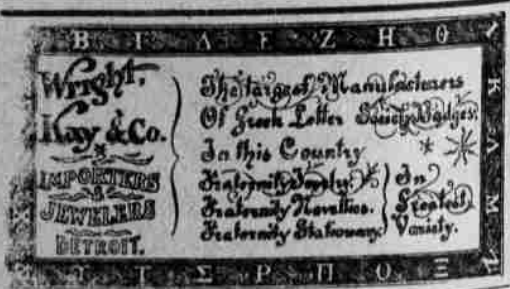 Β Γ Δ Ε Ζ Η Θ Ι
Κ Λ Μ Ν
Wright,
Kay & Co.
IMPORTERS
&
JEWELERS
DETROIT.
The largest Manufacturers
Of Greek Letter Society Badges,
In this Country
Fraternity Jewelry.
Fraternity Novelties.
Fraternity Stationary.
In
Greatest
Variety.
Υ Τ Σ Ρ Π Ο Ξ